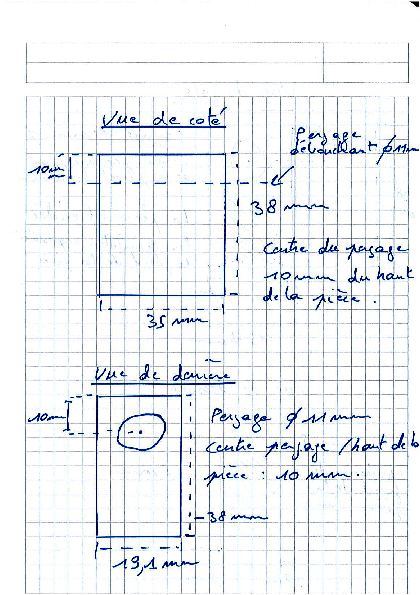 Vue de coté
Perçage
débouchant ø11mm
10mm
38 mm
Centre du perçage
10mm du haut
de la pièce.
35 mm
Vue de derrière
10mm
Perçage ø 11 mm
Centre perçage / haut de la
pièce : 10 mm.
38 mm
19,1 mm